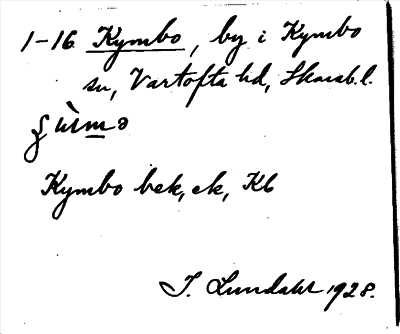 1-16 Kymbo, by i Kymbo
sn, Vartofta hd, Skarab.l.
Kymbo bek, ek, Kb
J. Lundahl 1928.